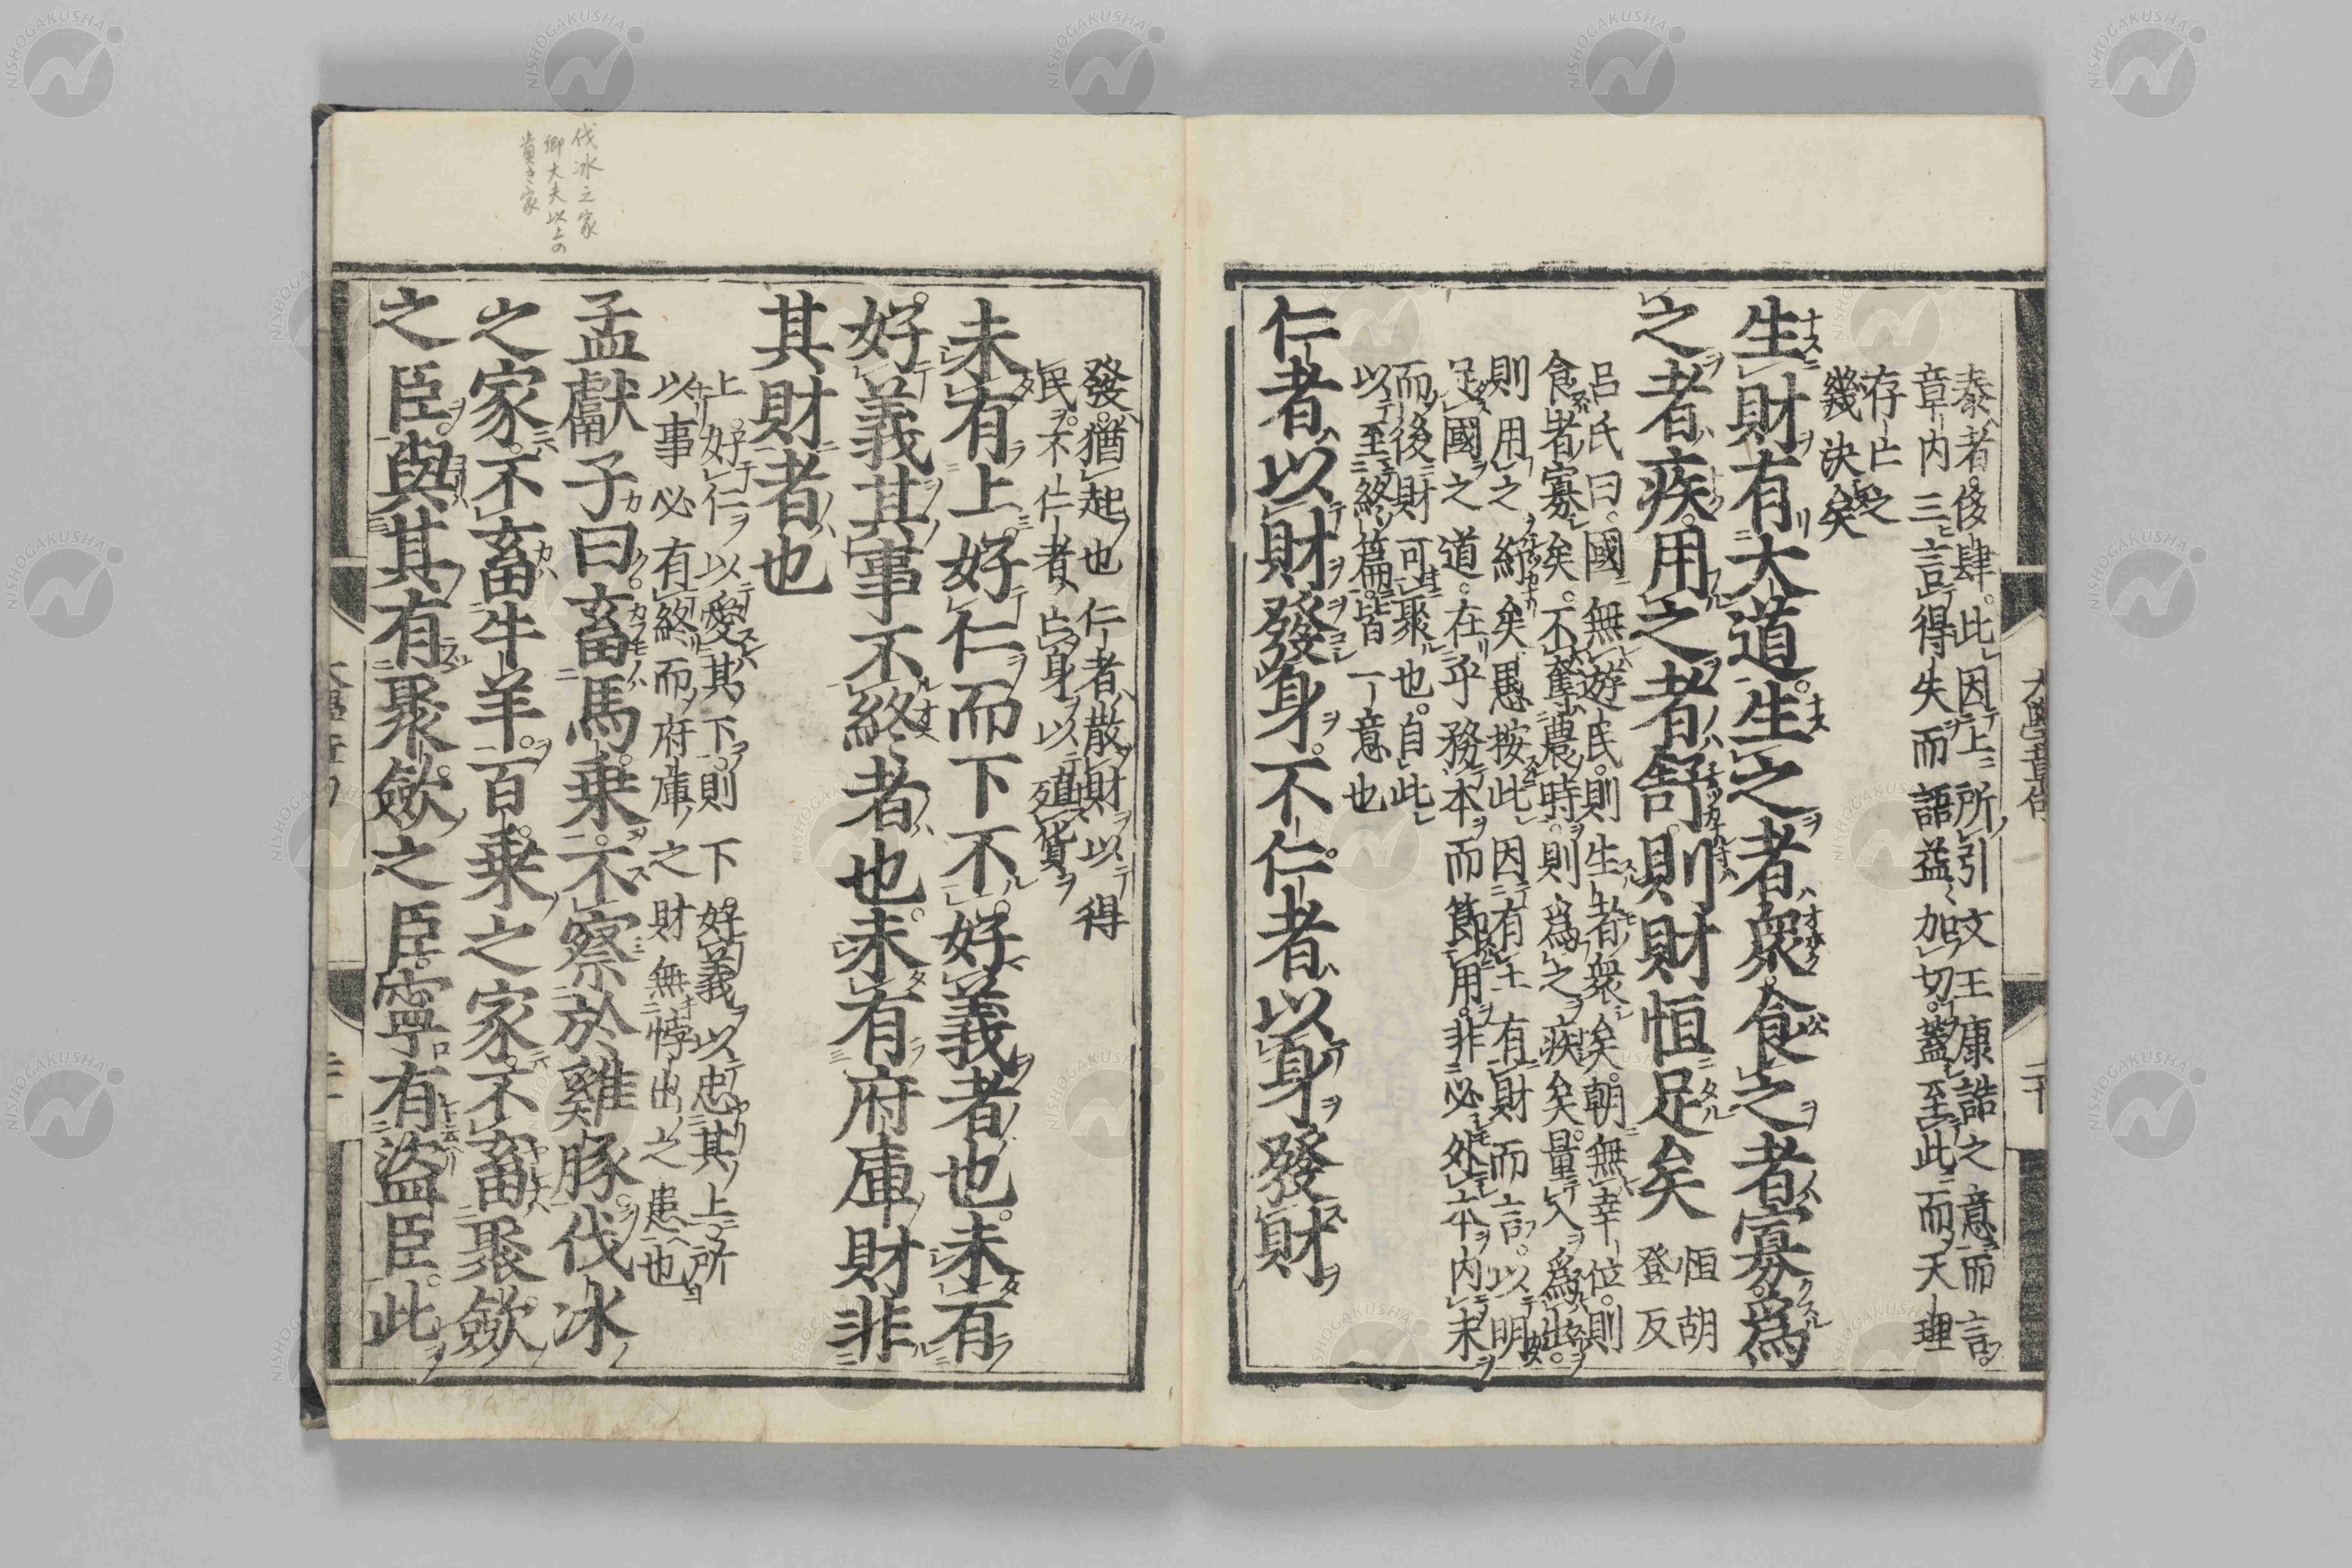 泰者侈肆此因上所引文王康誥之意而言
章内三言得失而語益加切蓋至此而天理
存亡之
幾決矣
生財有大道生之者衆食之者寡爲
之者疾用之者舒則財恒足矣 恒胡
登反
呂氏曰國無遊民則生者衆矣朝無幸位則
食者寡矣不奪農時則爲之疾矣量入爲出
則用之紓矣愚按此因有土有財而言以明
足國之道在乎務本而節用非必外本内末
而後財可聚也自此
以至終篇皆一意也
仁者以財發身不仁者以身發財
大學章句
二十
發猶起也仁者散財以得
民不仁者亡身以殖貨
未有上好仁而下不好義者也未有
好義其事不終者也未有府庫財非
其財者也
上好仁以愛其下則下好義以忠其上所
以事必有終而府庫之財無悖出之患也
孟獻子曰畜馬乗不察於雞豚伐冰
之家不畜牛羊百乗之家不畜聚斂
之臣與其有聚斂之臣寧有盜臣此
伐冰之家
卿大夫以上の
貴き家
NISHOGAKUSHA